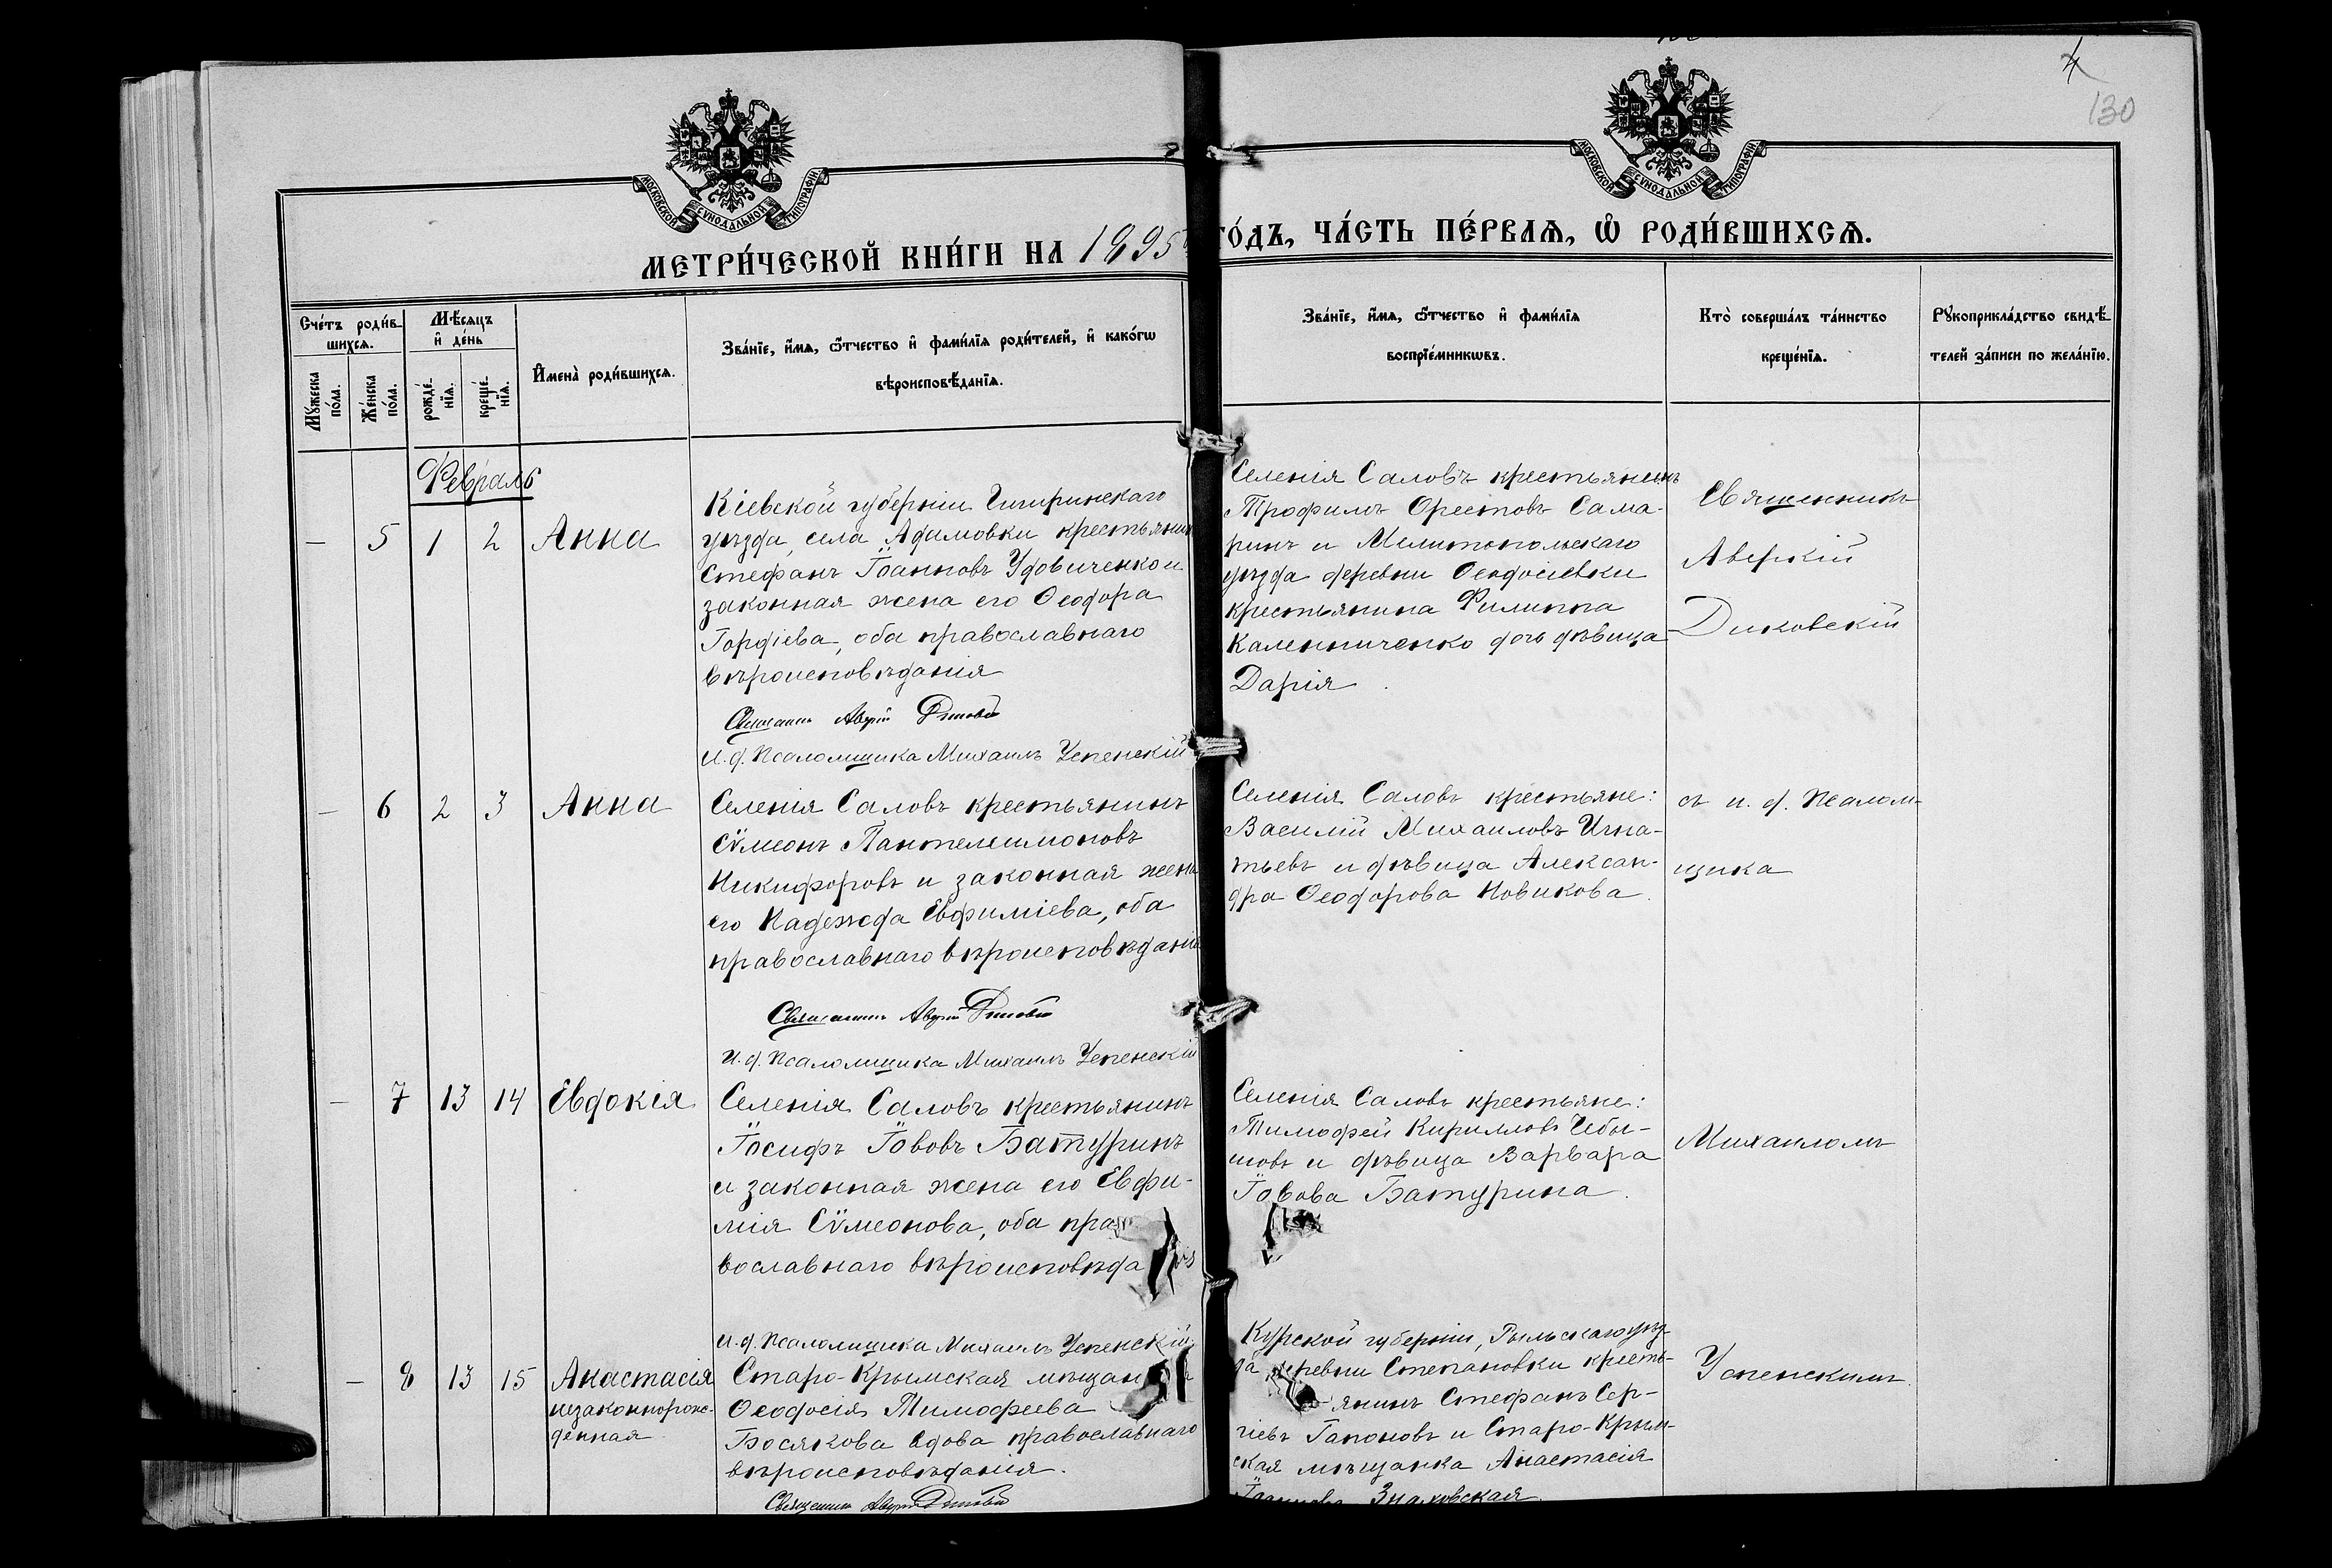 4
130
МОСКОВСКОЙ СѴНОДАЛЬНОЙ ТИПОГРАФІИ
МОСКОВСКОЙ СѴНОДАЛЬНОЙ ТИПОГРАФІИ
МЕТРИ́ЧЕСКОЙ КНИ́ГИ НА 1895
ГО́ДЪ, ЧА́СТЬ ПЕ́РВАѦ, Ѡ҆ РОДИ́ВШИХСѦ.
Сче́тъ роди́в-
шихсѧ.
Мꙋ́жеска по́ла.
Же́нска по́ла.
Мѣ́сѧцъ
и҆ де́нь
рожде́-
нїѧ.
креще́-
нїѧ.
И҆мена̀ роди́вшихсѧ.
Зва́нїе, и҆́мѧ, ѻ҆́тчество и҆ фами́лїѧ роди́телей, и҆ како́гѡ
вѣроисповѣ́данїѧ.
Зва́нїе, и҆́мѧ, ѻ҆́тчество и҆ фами́лїѧ
воспрїе́мникѡвъ.
Кто̀ соверша́лъ та́инство
креще́нїѧ.
Рꙋкоприкла́дство свидѣ́-
телей за́писи по жела́нїю.
Февраль
— 5 1 2 Анна
Кіевской губерніи Чигиринскаго
уѣзда, села Адамовки крестьянинъ
Стефанъ Іоанновъ Удовиченко и
законная жена его Ѳеодора
Гордіева, оба православнаго
вѣроисповѣданія
Священникъ Аверкій Диковскій
И. д. Псаломщика Михаилъ Успенскій
Селенія Саловъ крестьянинъ
Трофимъ Орестовъ Сама-
ринъ и Мелитопольскаго
уѣзда деревни Ѳеодосіевки
крестьянина Филиппа
Каленниченко дочь дѣвица
Дарія.
Священникъ
Аверкій
Диковскій
— 6 2 3 Анна
Селенія Саловъ крестьянинъ
Сѵмеонъ Пантелеимоновъ
Никифоровъ и законная жена
его Надежда Евфиміева, оба
православнаго вѣроисповѣданія
Священникъ Аверкій Диковскій
И. д. Псаломщика Михаилъ Успенскій
Селенія Саловъ крестьяне:
Василій Михаиловъ Игна-
тьевъ и дѣвица Алексан-
дра Ѳеодорова Новикова.
съ и. д. Псалом-
щика
— 7 13 14 Евдокія
Селенія Саловъ крестьянинъ
Іосифъ Іововъ Батуринъ
и законная жена его Евфи-
мія Сѵмеонова, оба пра
вославнаго вѣроисповѣда
И. д. Псаломщика Михаилъ Успенскій
Селенія Саловъ крестьяне:
Тимофей Кирилловъ Чебы-
шовъ и дѣвица Варвара
Іовова Батурина.
Михаиломъ
— 8 13 15 Анастасія
незаконнорож-
денная
Старо-Крымская мѣщан
Ѳеодосія Тимофеева
Босякова вдова православнаго
вѣроисповѣданія.
Священникъ Аверкій Диковскій
Курской губерніи, Рыльскаго уѣз-
да деревни Степановки кресть-
янинъ Стефанъ Сер-
гіевъ Гапоновъ и Старо-Крым-
ская мѣщанка Анастасія
Іоаннова Знаховская
Успенскимъ